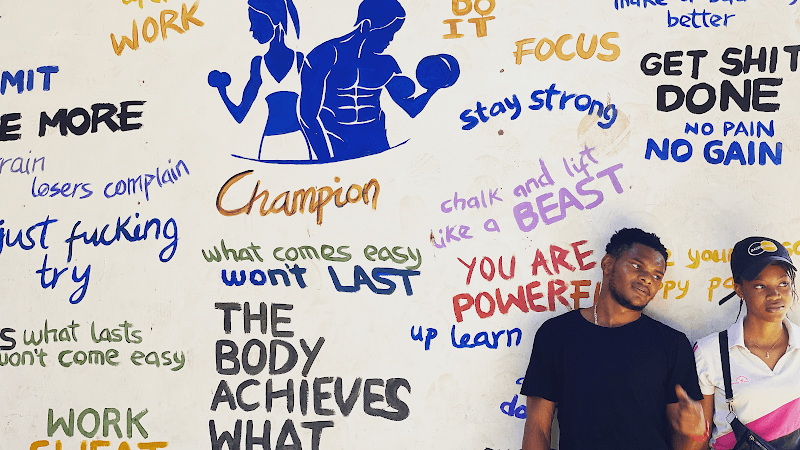 WORK
MIT
E MORE
rain
losers complain
just fucking
try
S what lasts
won't come easy
WORK
SWEAT
Champion
what comes easy
won't LAST
THE
BODY
ACHIEVES
WHAT
DO
IT
FOCUS
stay strong
chalk and lift
like a BEAST
YOU ARE
POWERF
up learn
do
make a bad
better
GET SHIT
DONE
NO PAIN
NO GAIN
e your
ppy pa